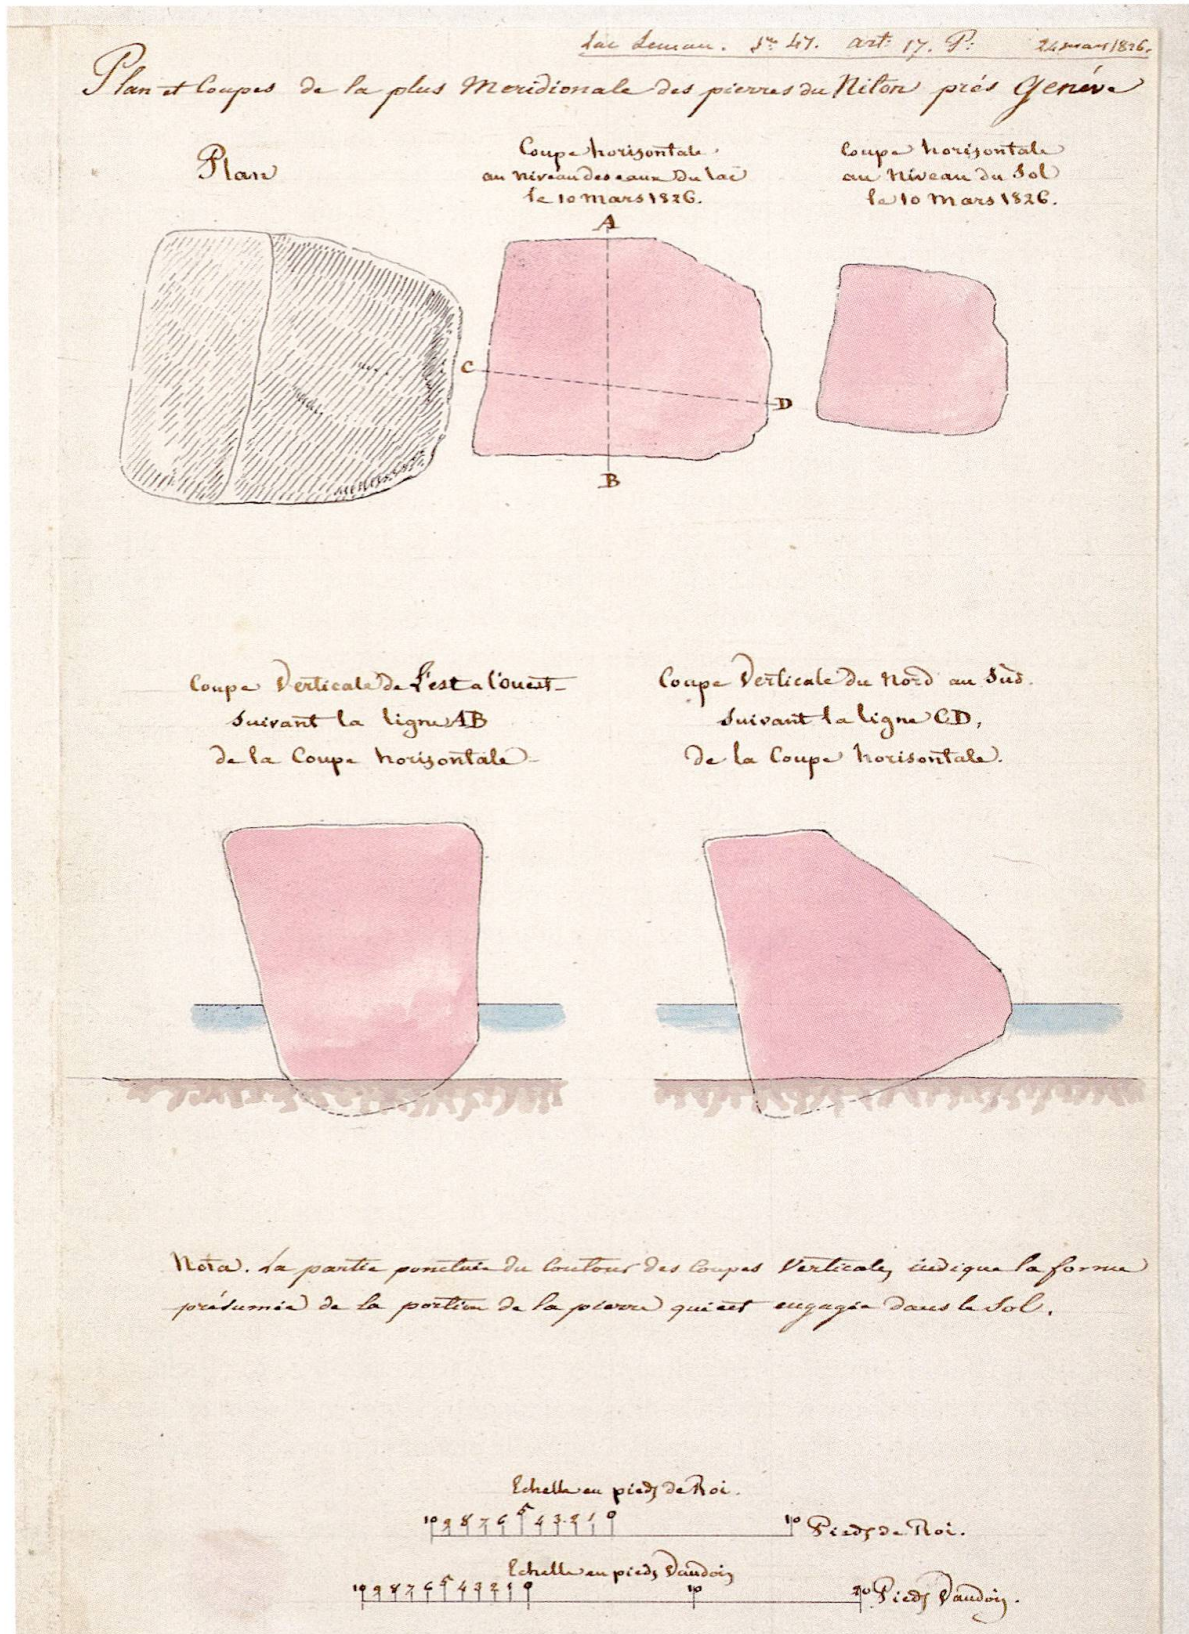 Lac Leman. Nº 47. art: 17. P: 24 mars 1826.
Plan et Coupes de la plus Meridionale des pierres du Niton près Genéve
Plan
Coupe horisontale
au niveau des eaux Du lac
le 10 Mars 1826.
Coupe horisontale
au Niveau du Sol
le 10 Mars 1826.
A
C
D
B
Coupe Verticale de L'est a l'ouest
Suivant la ligne AB
de la Coupe horisontale
Coupe Verticale du Nord au Sud.
Suivant la ligne CD,
de la Coupe horisontale.
Nota. La partie ponctuée du contour des Coupes Verticales, indique la forme
présumée de la portion de la pierre qui est engagée dans le Sol.
Echelle en pieds de Roi.
10 9 8 7 6 5 4 3 2 1 0 10 Pieds de Roi.
Echelle en pieds Vaudois
10 9 8 7 6 5 4 3 2 1 0 10 20 Pieds Vaudois.